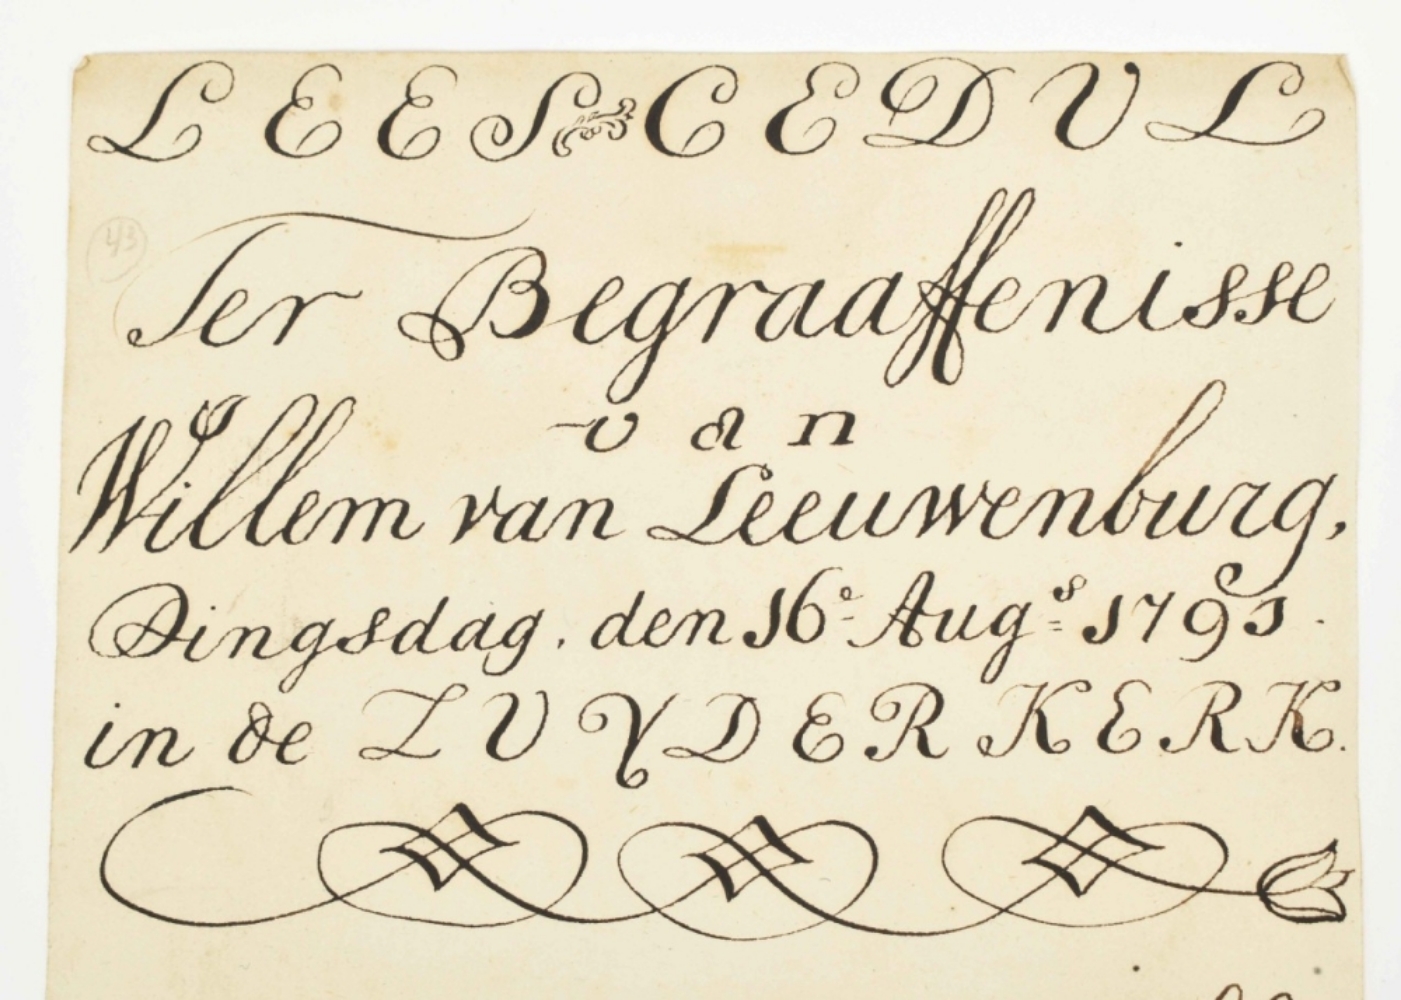 LEES CEDUL
43
Ter Begraaffenisse
van
Willem van Leeuwenburg,
Dingsdag, den 16e Augs 1791.
in de ZUYDER KERK.